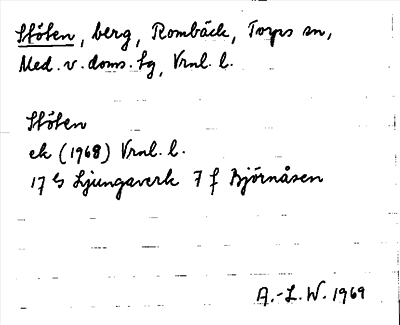 Stöten, berg, Rombäck, Torps sn,
Med. v. doms. tg, Vrnl. l.
Stöten
ek (1968) Vrnl. l.
17 G Ljungaverk 7 f Björnåsen
A.-L. W. 1969